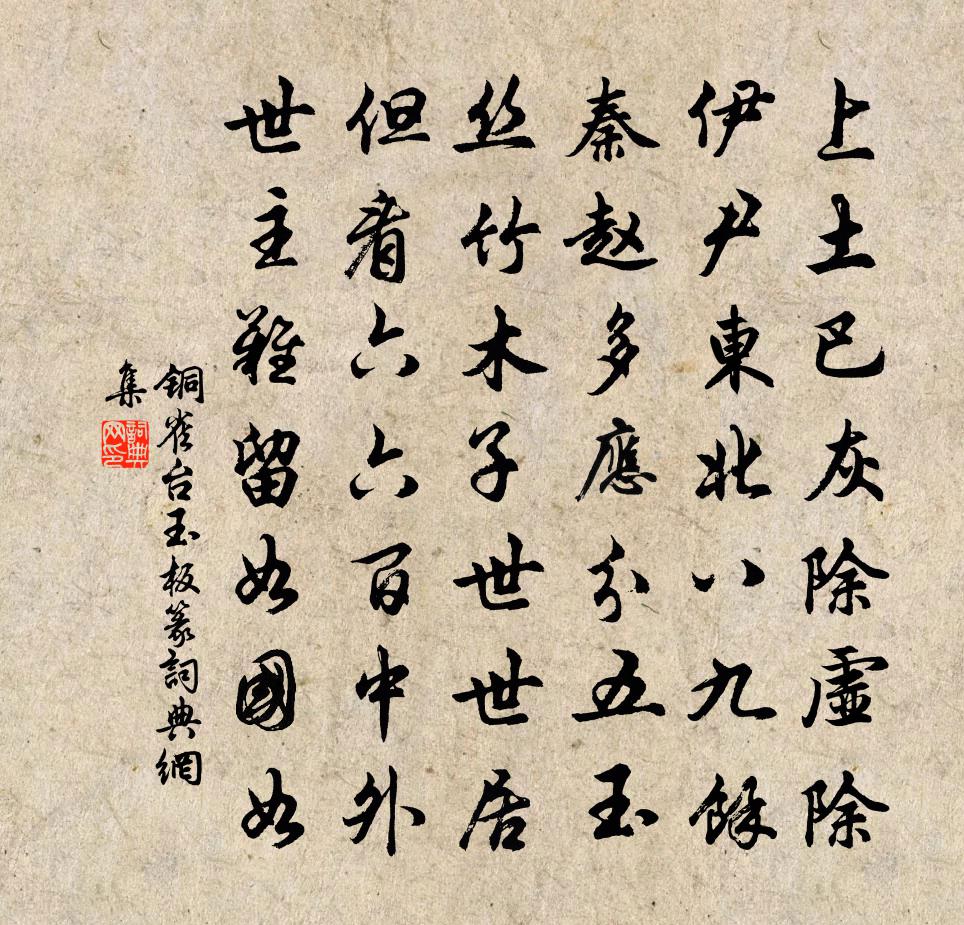 上土巳灰除虛除
伊尹東北八九餘
秦赵多應分五玉
丝竹木子世世居
但看六六百中外
世主難留如國如
銅雀台玉板篆詞典網
集
詞典
网印